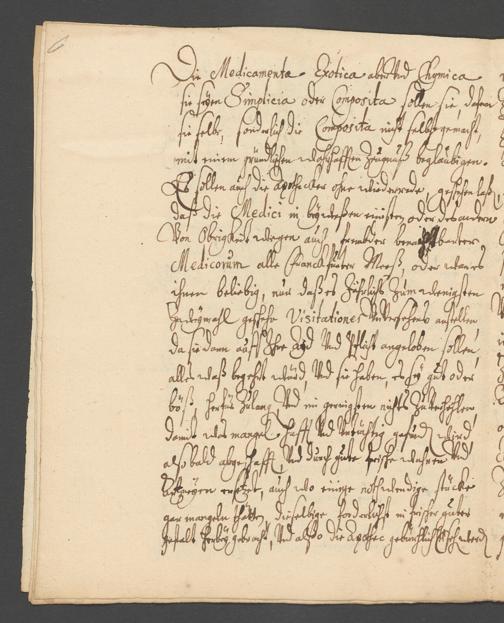 6
Die Medicamenta Exotica aber und Chymica
sie seyen Simplicia oder Composita sollen sie, dafern
sie selbs, sonderlich die Composita nicht selbst gemacht,
mit einem gründlichen wahrhafften Zeugnuß beglaubigen.
Es sollen auch die Apothecker ohne wiederrede geschehen laß
daß die Medici in beywesen eines, oder des andern
Von Obrigkeits wegen auch frembder benachbarter
Medicorum alle Franckfurter Meeß, oder wann es
ihnen beliebig, nur daß es Jährlich zum wenigsten
Zweymahl geschehe Visitationes unversehens anstellen
da sie dann auff Ihre Ayd und Pflicht angeloben sollen,
alles waß begehrt würd, und sie haben, es sey gut oder
böß herfür zulang, und im geringsten nichts zuverhehlen,
damit was mangelhafft und untüchtig gefund wird
alsobald abgeschafft, und durch gute frische wahren und
ersetzt, auch wo einige nothwendige stücke
gar mangeln thäten, dieselbige forderlichst in frischer guter
gestalt herbey gebracht, und also die Apothec gebührlich